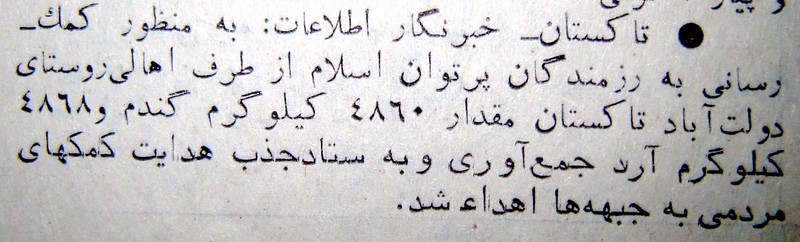 ● تاکستان- خبرنگار اطلاعات: به منظور کمک-
رسانی به رزمندگان پرتوان اسلام از طرف اهالی روستای
دولت‌آباد تاکستان مقدار ۴۸۶۰ کیلوگرم گندم و ۴۸۶۸
کیلوگرم آرد جمع‌آوری و به ستاد جذب هدایت کمکهای
مردمی به جبهه‌ها اهداء شد.